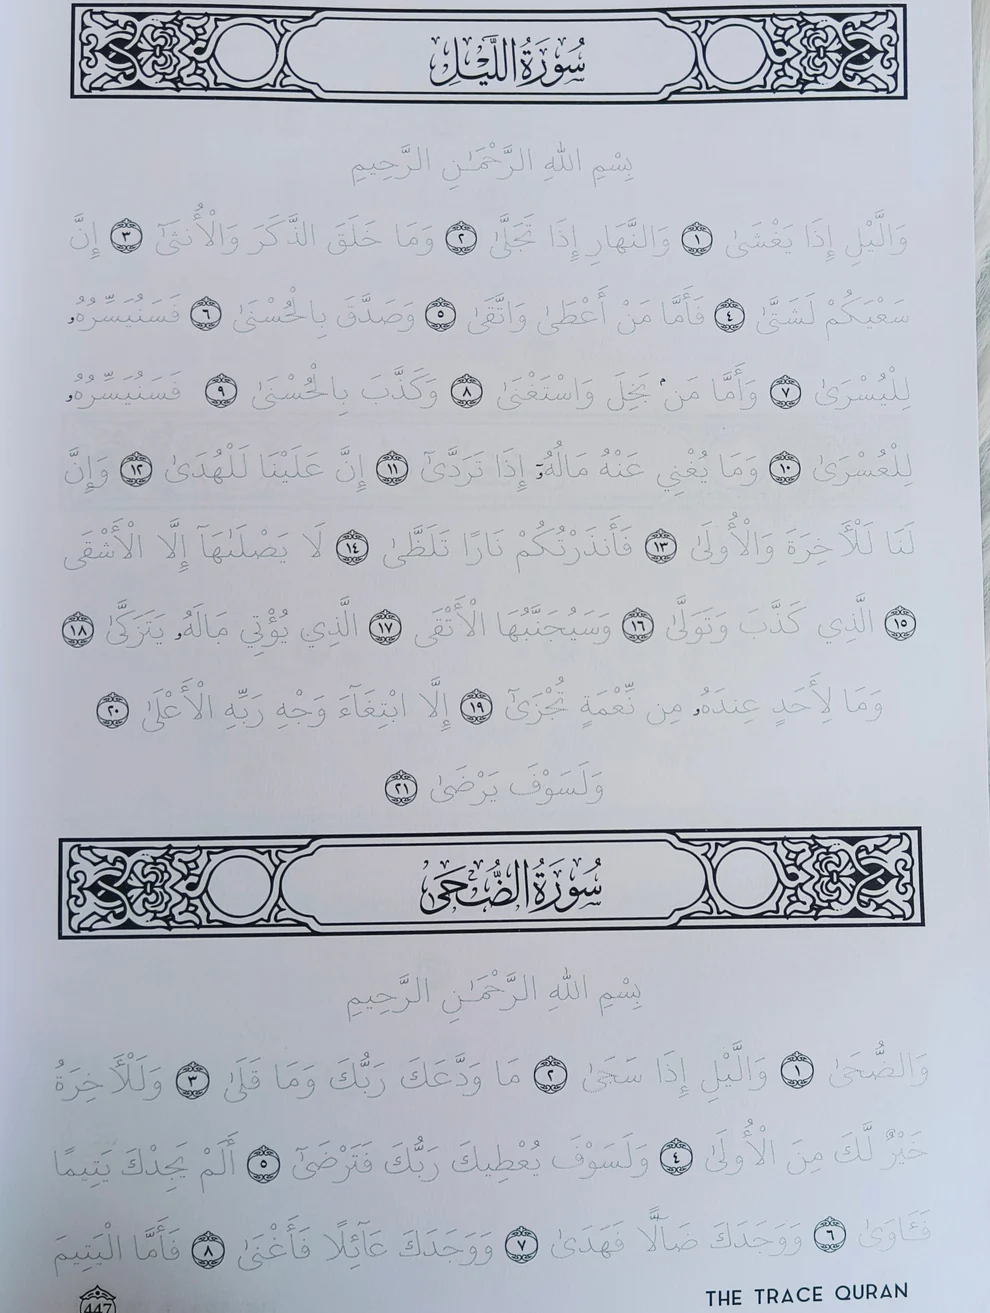 سُورَةُ اللَّيْلِ
بِسْمِ اللَّهِ الرَّحْمَـٰنِ الرَّحِيمِ
وَالَّيْلِ إِذَا يَغْشَىٰ ١ وَالنَّهَارِ إِذَا تَجَلَّىٰ ٢ وَمَا خَلَقَ الذَّكَرَ وَالْأُنثَىٰٓ ٣ إِنَّ
سَعْيَكُمْ لَشَتَّىٰ ٤ فَأَمَّا مَنْ أَعْطَىٰ وَاتَّقَىٰ ٥ وَصَدَّقَ بِالْحُسْنَىٰ ٦ فَسَنُيَسِّرُهُۥ
لِلْيُسْرَىٰ ٧ وَأَمَّا مَنۢ بَخِلَ وَاسْتَغْنَىٰ ٨ وَكَذَّبَ بِالْحُسْنَىٰ ٩ فَسَنُيَسِّرُهُۥ
لِلْعُسْرَىٰ ١٠ وَمَا يُغْنِي عَنْهُ مَالُهُۥٓ إِذَا تَرَدَّىٰٓ ١١ إِنَّ عَلَيْنَا لَلْهُدَىٰ ١٢ وَإِنَّ
لَنَا لَلْأَخِرَةَ وَالْأُولَىٰ ١٣ فَأَنذَرْتُكُمْ نَارًا تَلَظَّىٰ ١٤ لَا يَصْلَىٰهَآ إِلَّا الْأَشْقَى
١٥ الَّذِي كَذَّبَ وَتَوَلَّىٰ ١٦ وَسَيُجَنَّبُهَا الْأَتْقَى ١٧ الَّذِي يُؤْتِي مَالَهُۥ يَتَزَكَّىٰ ١٨
وَمَا لِأَحَدٍ عِندَهُۥ مِن نِّعْمَةٍ تُجْزَىٰٓ ١٩ إِلَّا ابْتِغَآءَ وَجْهِ رَبِّهِ الْأَعْلَىٰ ٢٠
وَلَسَوْفَ يَرْضَىٰ ٢١
سُورَةُ الضُّحَىٰ
بِسْمِ اللَّهِ الرَّحْمَـٰنِ الرَّحِيمِ
وَالضُّحَىٰ ١ وَالَّيْلِ إِذَا سَجَىٰ ٢ مَا وَدَّعَكَ رَبُّكَ وَمَا قَلَىٰ ٣ وَلَلْأَخِرَةُ
خَيْرٌ لَّكَ مِنَ الْأُولَىٰ ٤ وَلَسَوْفَ يُعْطِيكَ رَبُّكَ فَتَرْضَىٰٓ ٥ أَلَمْ يَجِدْكَ يَتِيمًا
فَـَٔاوَىٰ ٦ وَوَجَدَكَ ضَآلًّا فَهَدَىٰ ٧ وَوَجَدَكَ عَآئِلًا فَأَغْنَىٰ ٨ فَأَمَّا الْيَتِيمَ
447
THE TRACE QURAN